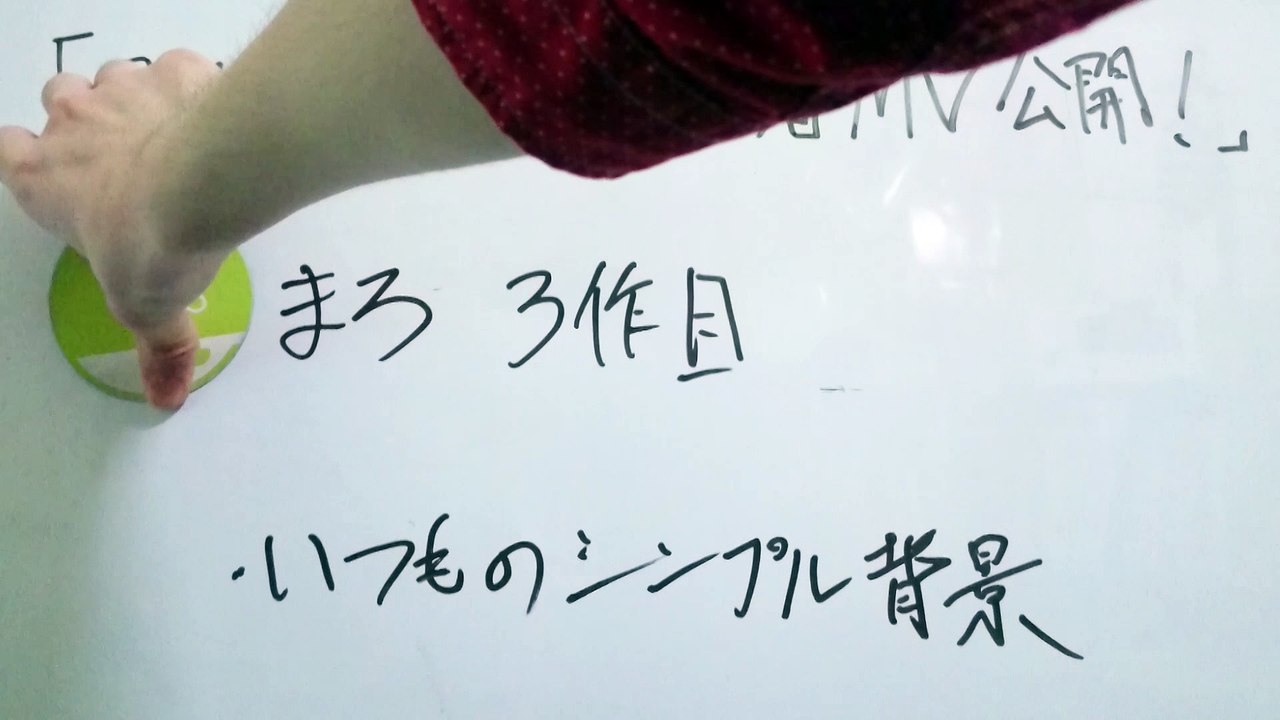 「 MV公開!」
まろ 3作目
・いつものシンプル背景